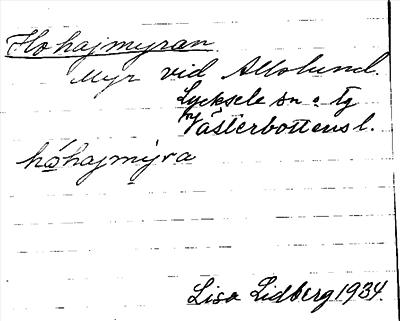 Hohajmyran
Myr vid Allolund.
Lycksele sn o. tg
Västerbottens l.
håhajmyra
Lisa Lidberg 1934.